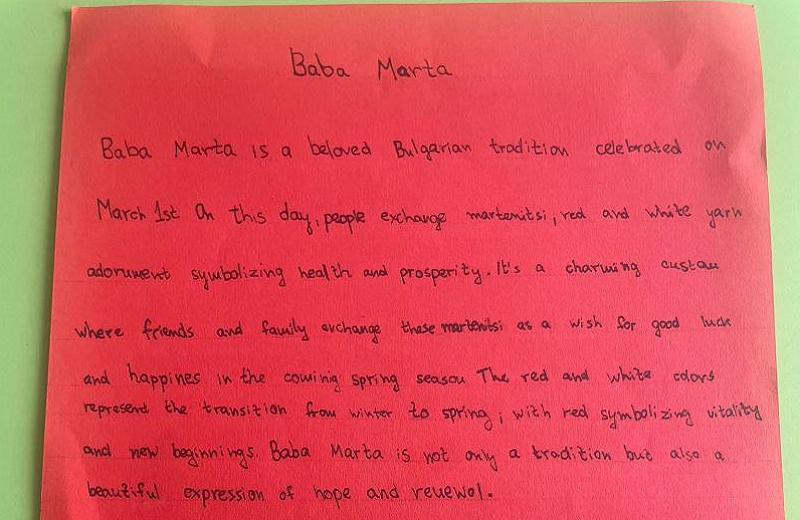 Baba Marta
Baba Marta is a beloved Bulgarian tradition celebrated on
March 1st On this day, people exchange martenitsi, red and white yarn
adorument symbolizing health and prosperity. It's a charming custom
where friends and family exchange these martenitsi as a wish for good luck
and happines in the coming spring season The red and white colors
represent the transition from winter to spring, with red symbolizing vitality
and new beginnings. Baba Marta is not only a tradition but also a
beautiful expression of hope and renewal.